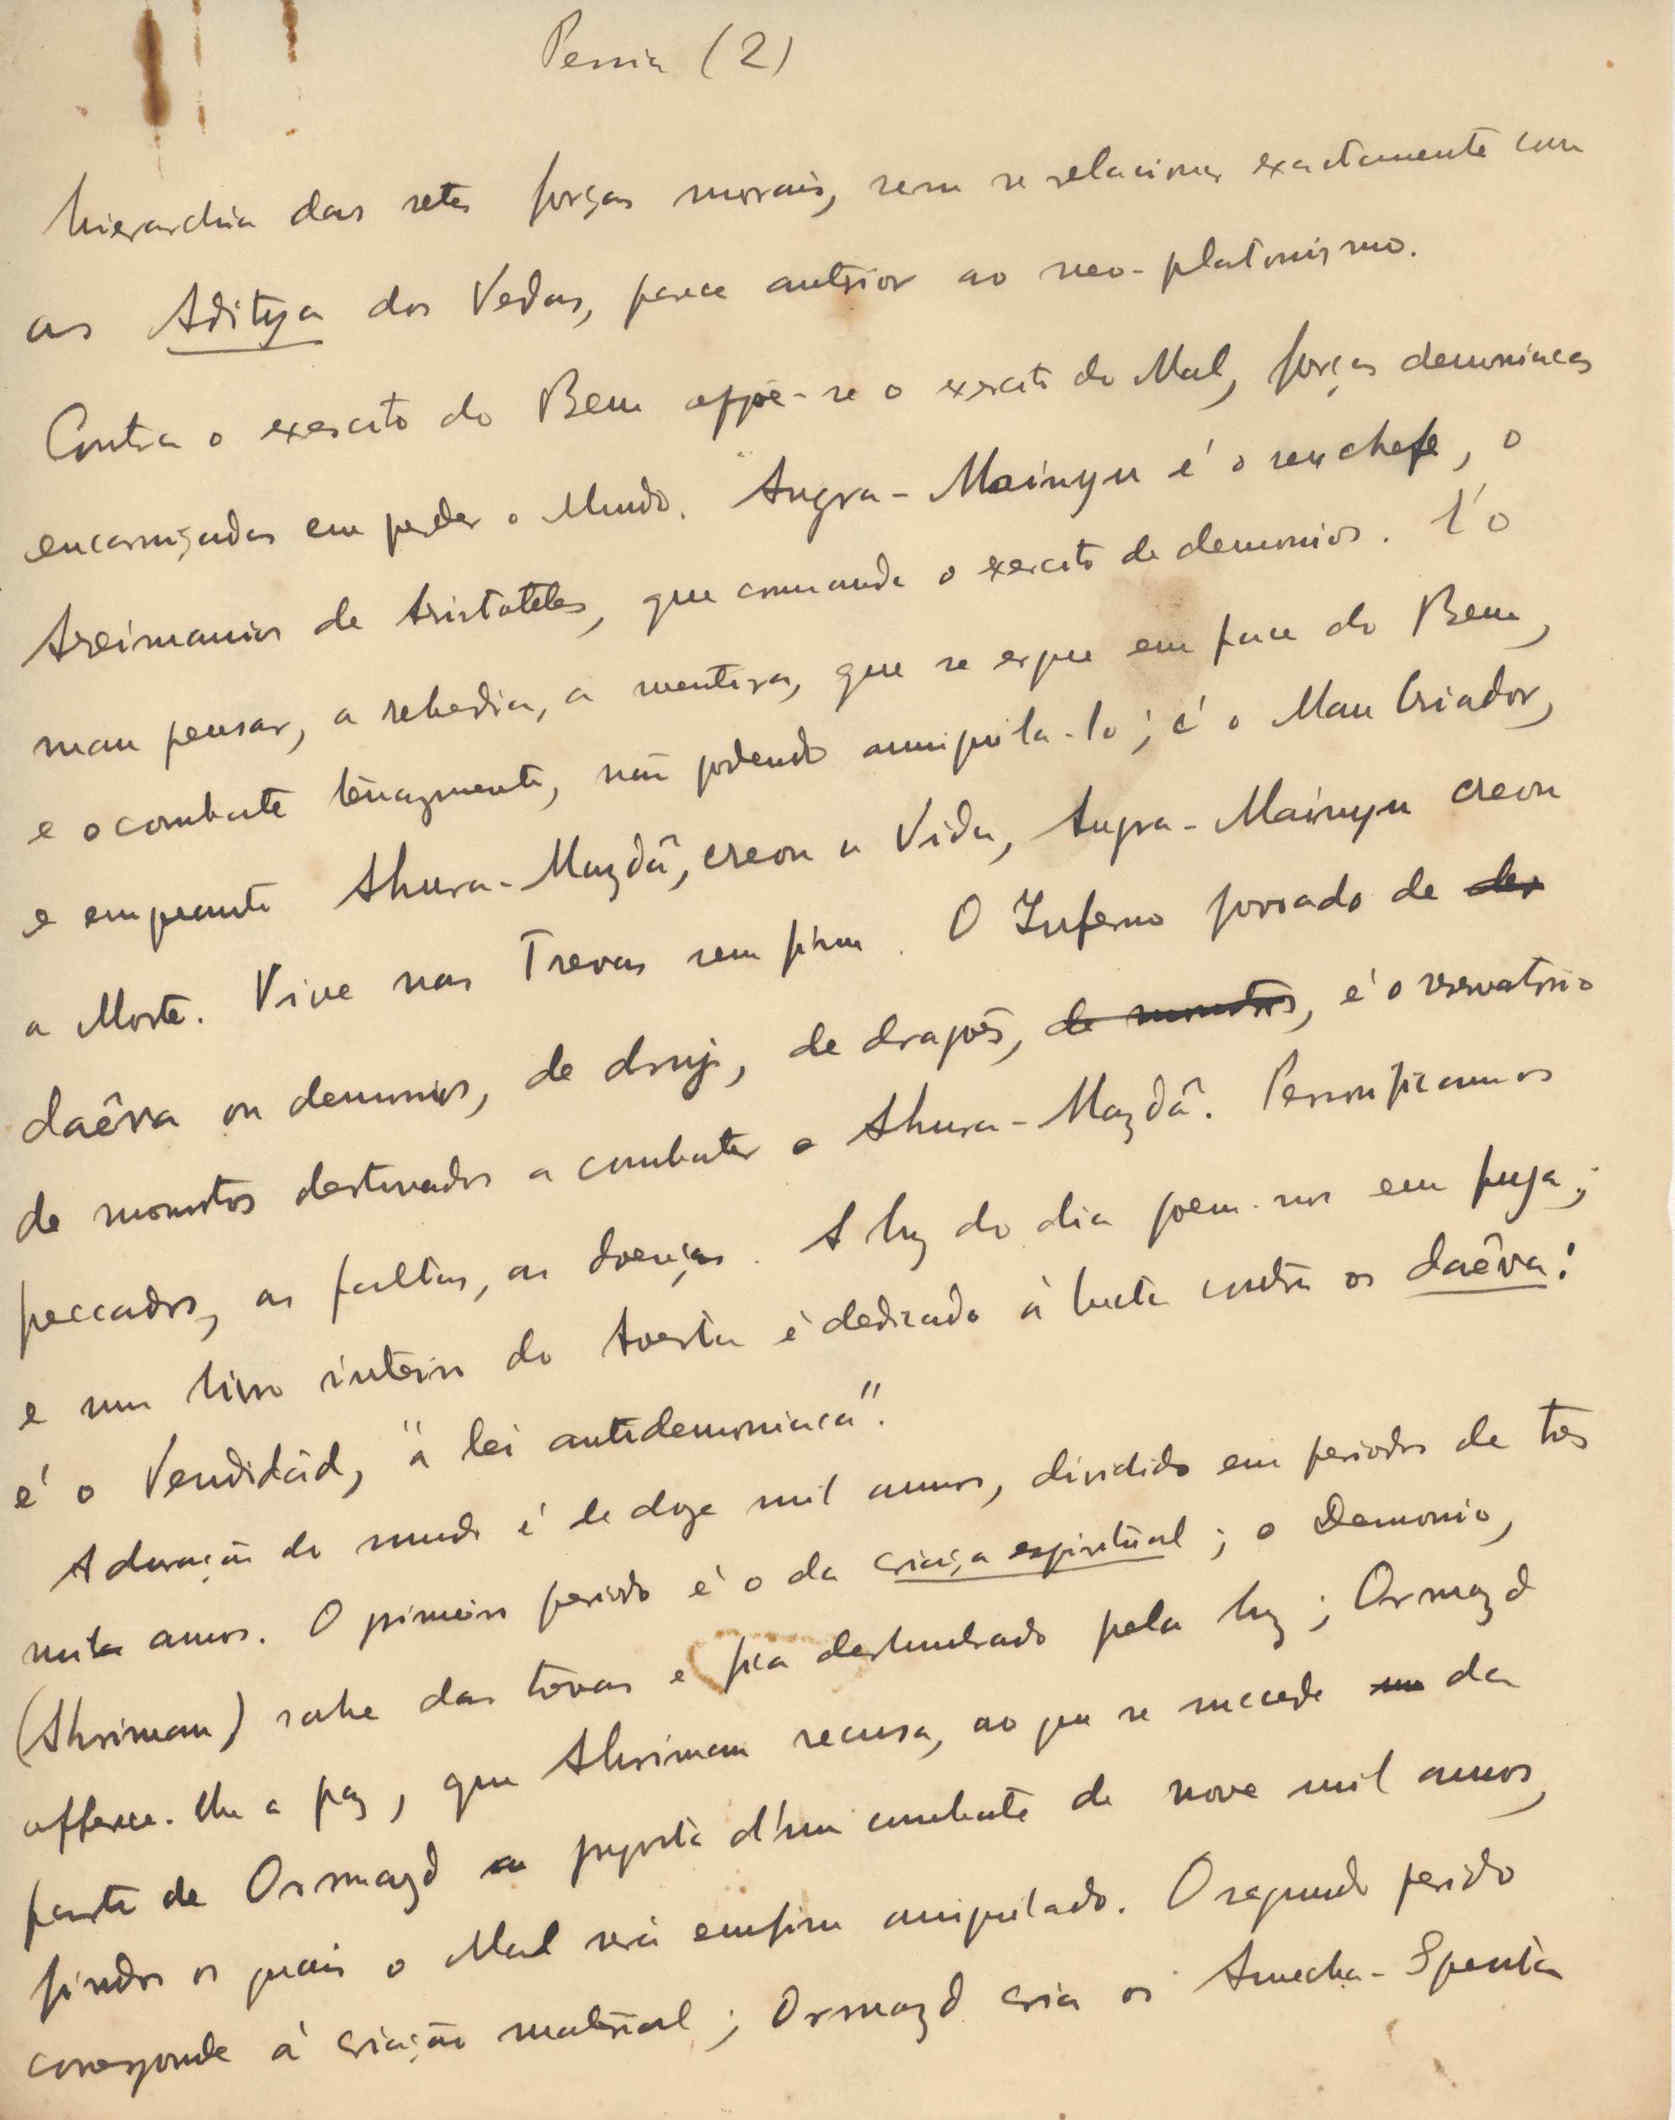 Persia (2)
hierarchia das sete forças moraes, sem se relacionar exactamente com
as Aditya dos Vedas, parece anterior ao neo-platonismo.
Contra o exercito do Bem oppõe-se o exercito do Mal, forças demoniacas
encarniçadas em perder o Mundo. Angra-Mainyu é o seu chefe, o
Areimanios de Aristoteles, que commanda o exercito de demonios. É o
mau pensar, a rebedia, a mentira, que se ergue em face do Bem,
e o combate tenazmente, não podendo anniquila-lo; é o Mau Criador,
e emquanto Ahura-Mazdâ, creou a Vida, Angra-Mainyu creou
a Morte. Vive nas Trevas sem fim. O Inferno forrado de des
daêva ou demonios, de druj, de dragões, de monstros, é o reservatorio
de monstros destinados a combater a Ahura-Mazdâ. Personificamos
peccados, as faltas, as doenças. A luz do dia poem-nos em fuga;
e um livro inteiro do Avesta é dedicado á lucta contra os daêva:
é o Vendidâd, "a lei antidemoniaca".
A duração do mundo é de doze mil annos, dividido em periodos de tres
mil annos. O primeiro periodo é o da criaça espiritual; o Demonio,
(Ahriman) sahe das trevas e fica deslumbrado pela luz; Ormazd
offerece-lhe a paz, que Ahriman recusa, ao que se succede da
parte de Ormazd a proposta d'um combate de nove mil annos,
findos os quais o Mal será emfim aniquilado. O segundo periodo
corresponde á criação material; Ormazd cria os Amecha-Spenta